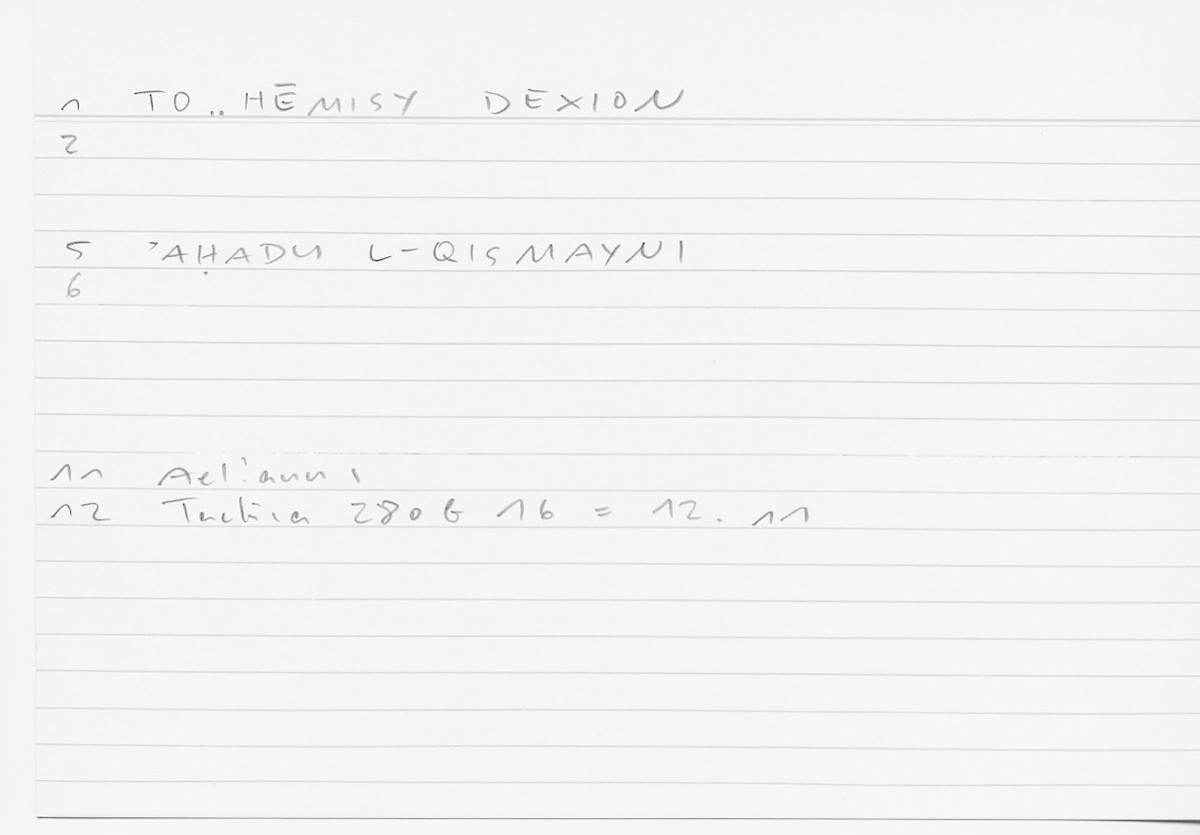 1 TO .. HĒMISY DEXION
2
5 ʾAḤADU L-QISMAYNI
6
11 Aeliani
12 Tactica 280 b 16 = 12. 11